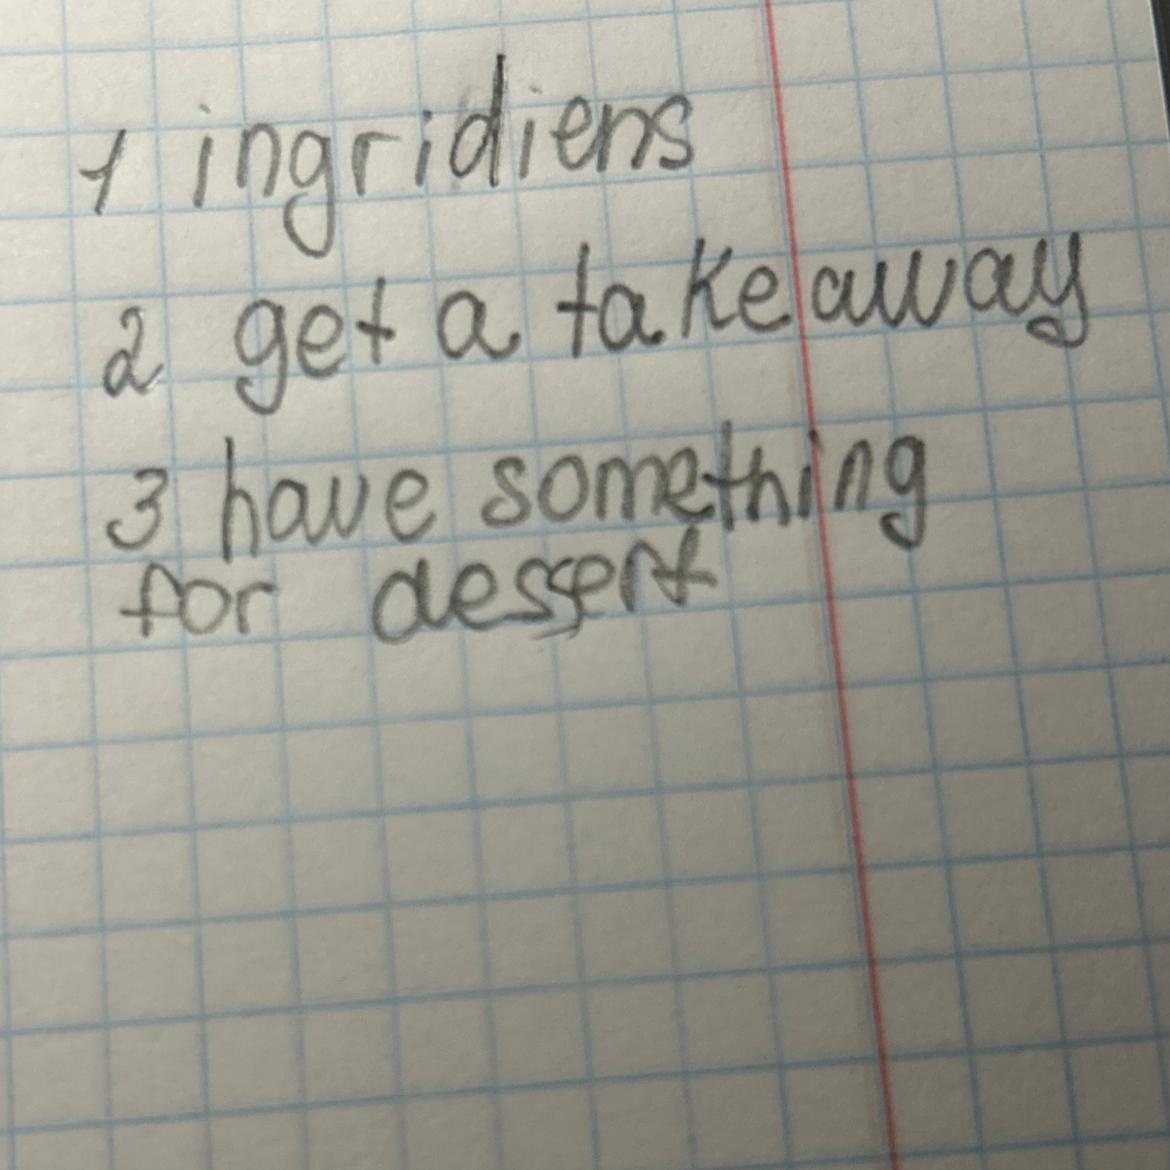 1 ingridiens
2 get a takeaway
3 have something
for dessert